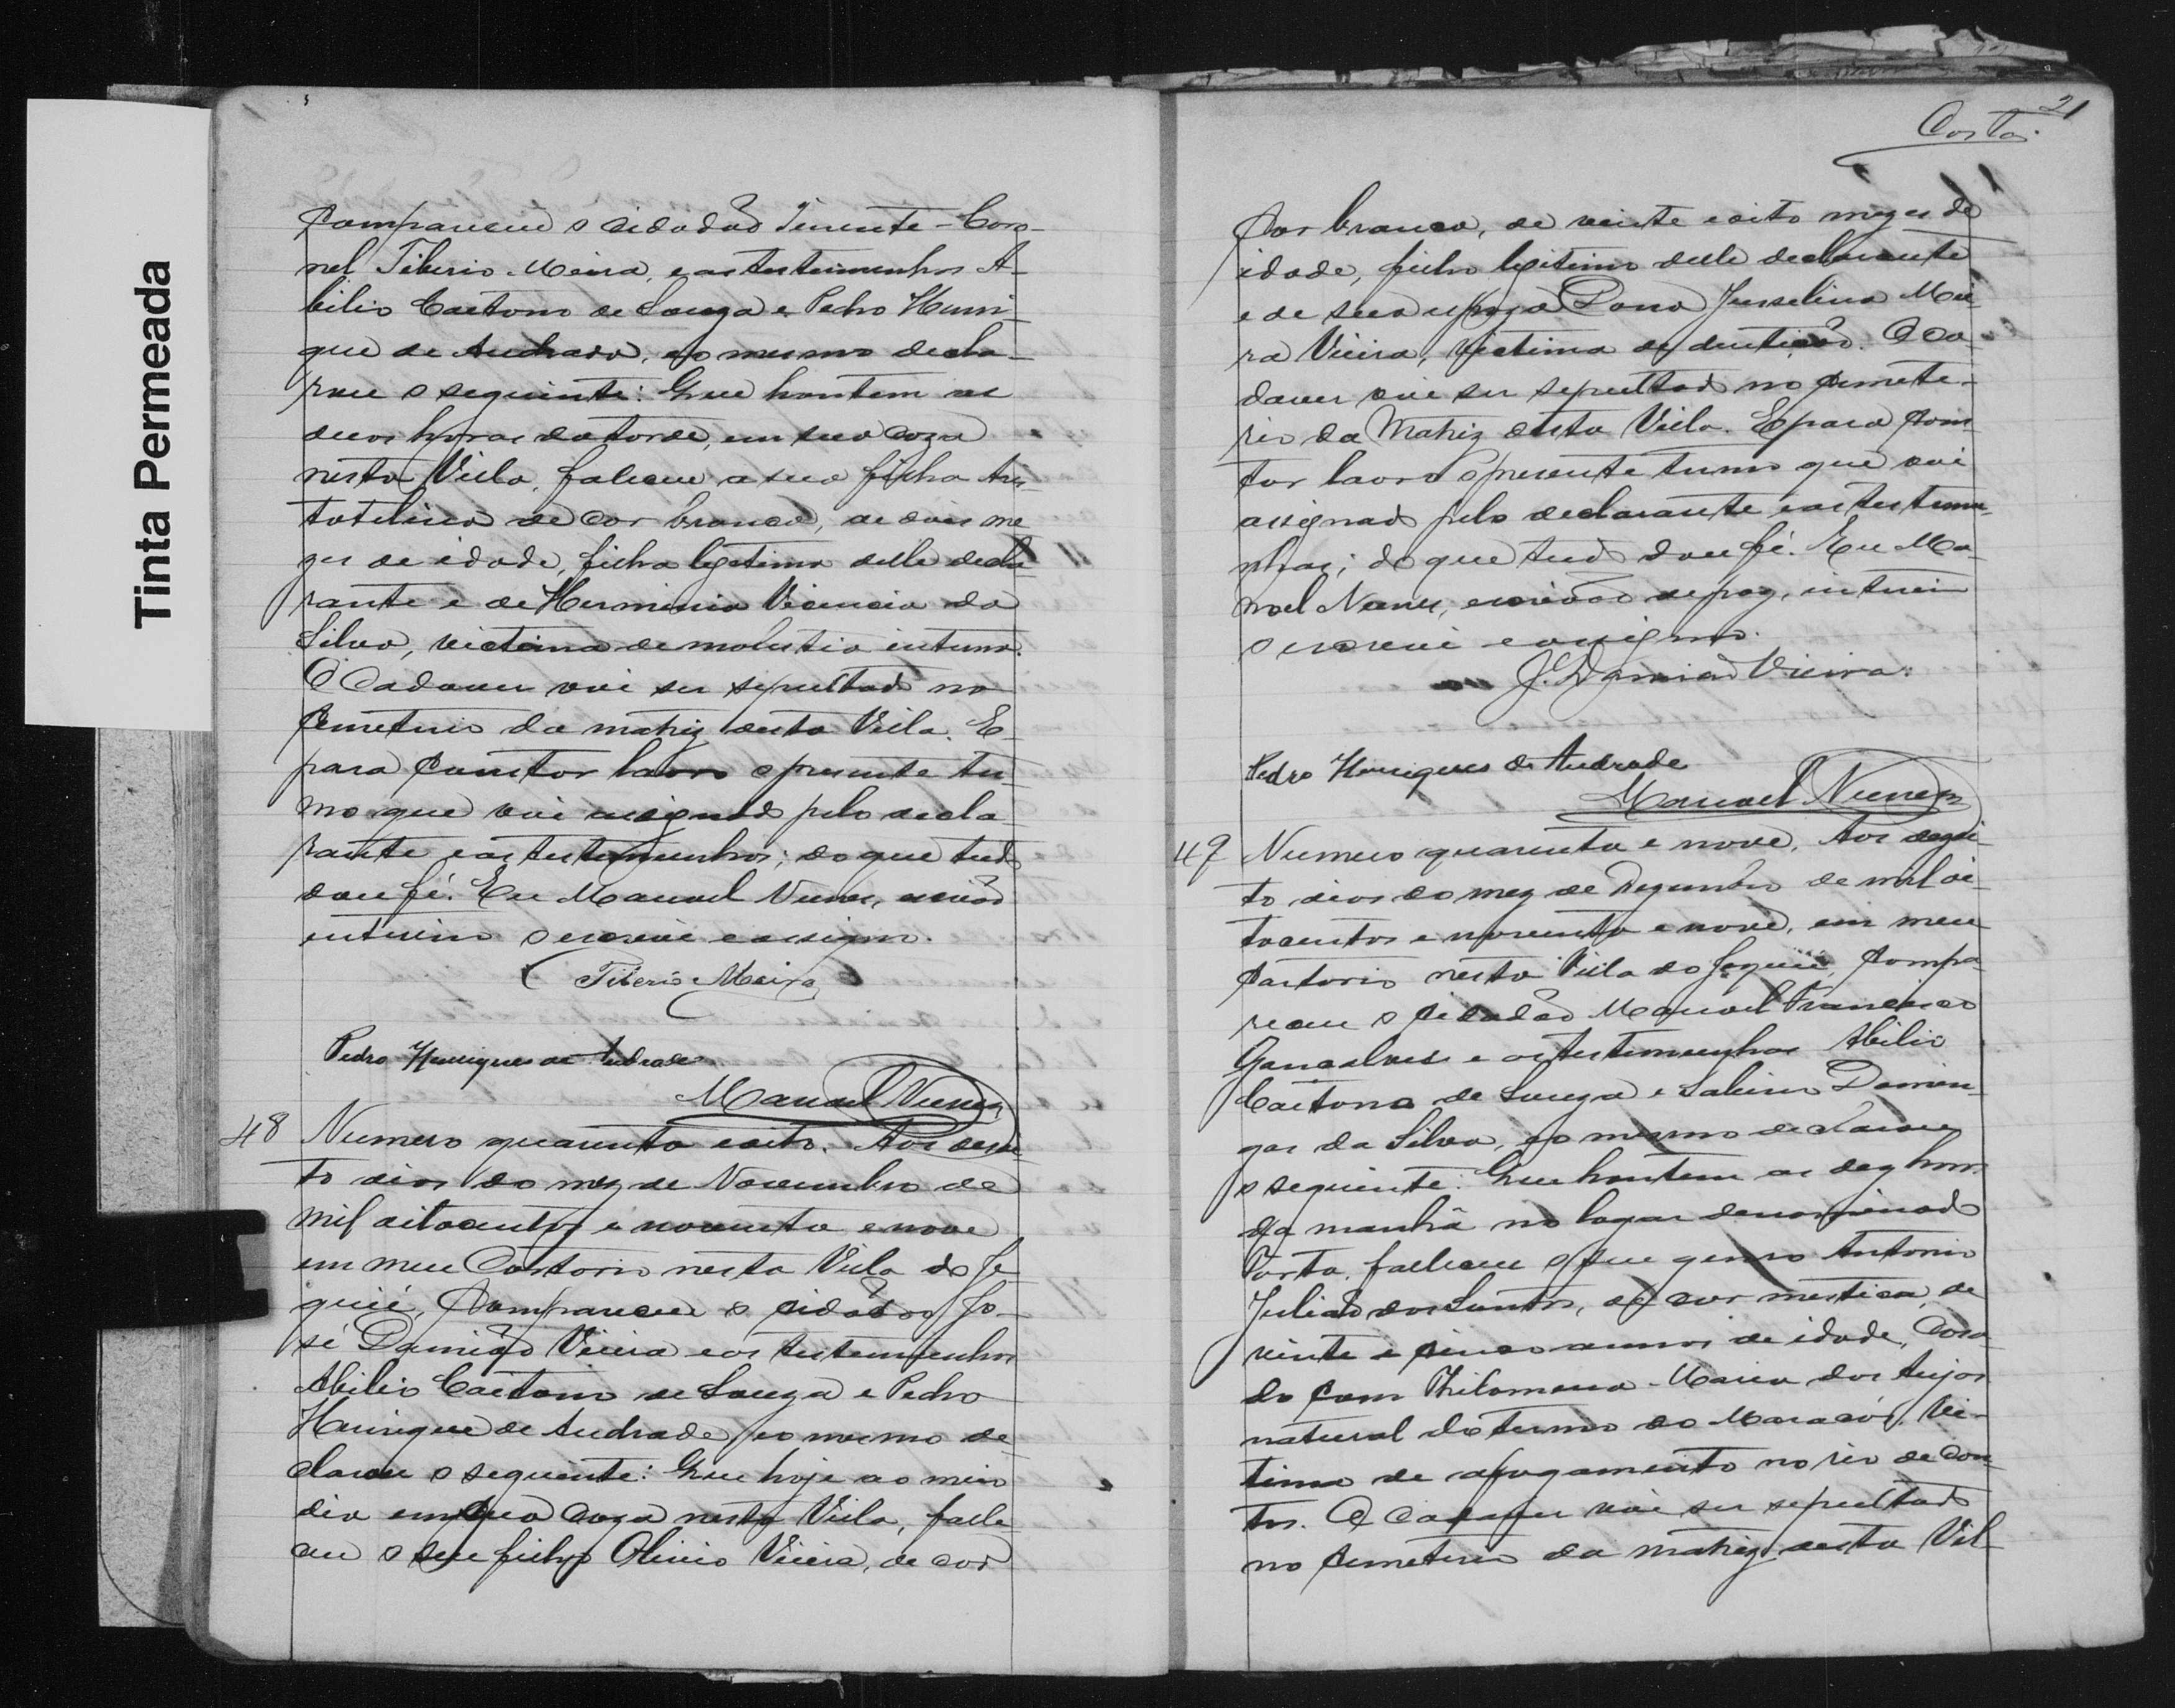 Tinta Permeada
compareceu o cidadão Tenente-Coro-
nel Tiberio Meira, e as testimunhas A-
bilio Caetano de Souza e Pedro Henri-
que de Andrade, e o mesmo decla-
rou o seguinte: Que hontem as
duas horas da tarde, em sua caza
nesta Villa, faleceu a sua filha Aris-
totelina de cor branca, de dois me-
zes de idade, filha legitima delle decla-
rante e de Herminia Vicencia da
Silva, victima de molestia interna.
O Cadaver vai ser sepultado no
Cemeterio da matriz desta Villa. E
para constar lavro o presente ter-
mo que vai assignado pelo decla-
rante e as testemunhas; do que tudo
dou fé. Eu Manoel Nunes, escrivão
interino o escrevi e assigno.
Tiberio Meira
Pedro Henriques de Andrade
Manoel Nunes
48 Numero quarenta e oito. Aos desoi-
to dias do mez de Novembro de
mil oitocentos e noventa e nove
em meu Cartorio nesta Villa do Je-
quié, compareceu o cidadão Jo-
sé Damião Vieira e as testemunhas
Abilio Caetano de Souza e Pedro
Henrique de Andrade, e o mesmo de-
clarou o seguente: Que hoje ao meio
dia em sua caza nesta Villa, falle-
ceu o seu filho Olivio Vieira, de cor
21
Costa.
cor branca, de vinte e oito mezes de
idade, filho legitimo delle declarante
e de sua espoza Dona Jusselina Mei-
ra Vieira, victima de dentição. O ca-
daver vai ser sepultado no cemete-
rio da Matriz desta Villa. E para cons-
tar lavro o presente termo que vai
assignado pelo declarante e as testemu-
nhas; do que tudo dou fé. Eu Ma-
noel Nunes, escrivão de paz, interino
o escrevi e assigno.
J. Damião Vieira.
Pedro Henriques de Andrade
Manoel Nunes
49 Numero quarenta e nove. Aos dezoi-
to dias do mez de Dezembro de mil oi-
tocentos e noventa e nove, em meu
Cartorio nesta Villa do Jequié, compa-
receu o cidadão Manoel Francisco
Gonçalves e as testimunhas Abilio
Caetano de Souza e Sabino Domin-
gos da Silva, e o mesmo declarou
o seguinte: Que hontem as dez horas
da manhã no lugar denominado
Porto, falleceu o seu genro Antonio
Julião dos Santos, de cor mestiça, de
vinte e cinco annos de idade, Casa-
do com Philomena Maria dos Anjos
natural do termo do Maracás, vic-
tima de afogamento no rio de Con-
tas. O Cadaver vai ser sepultado
no cemeterio da matriz desta Vil-